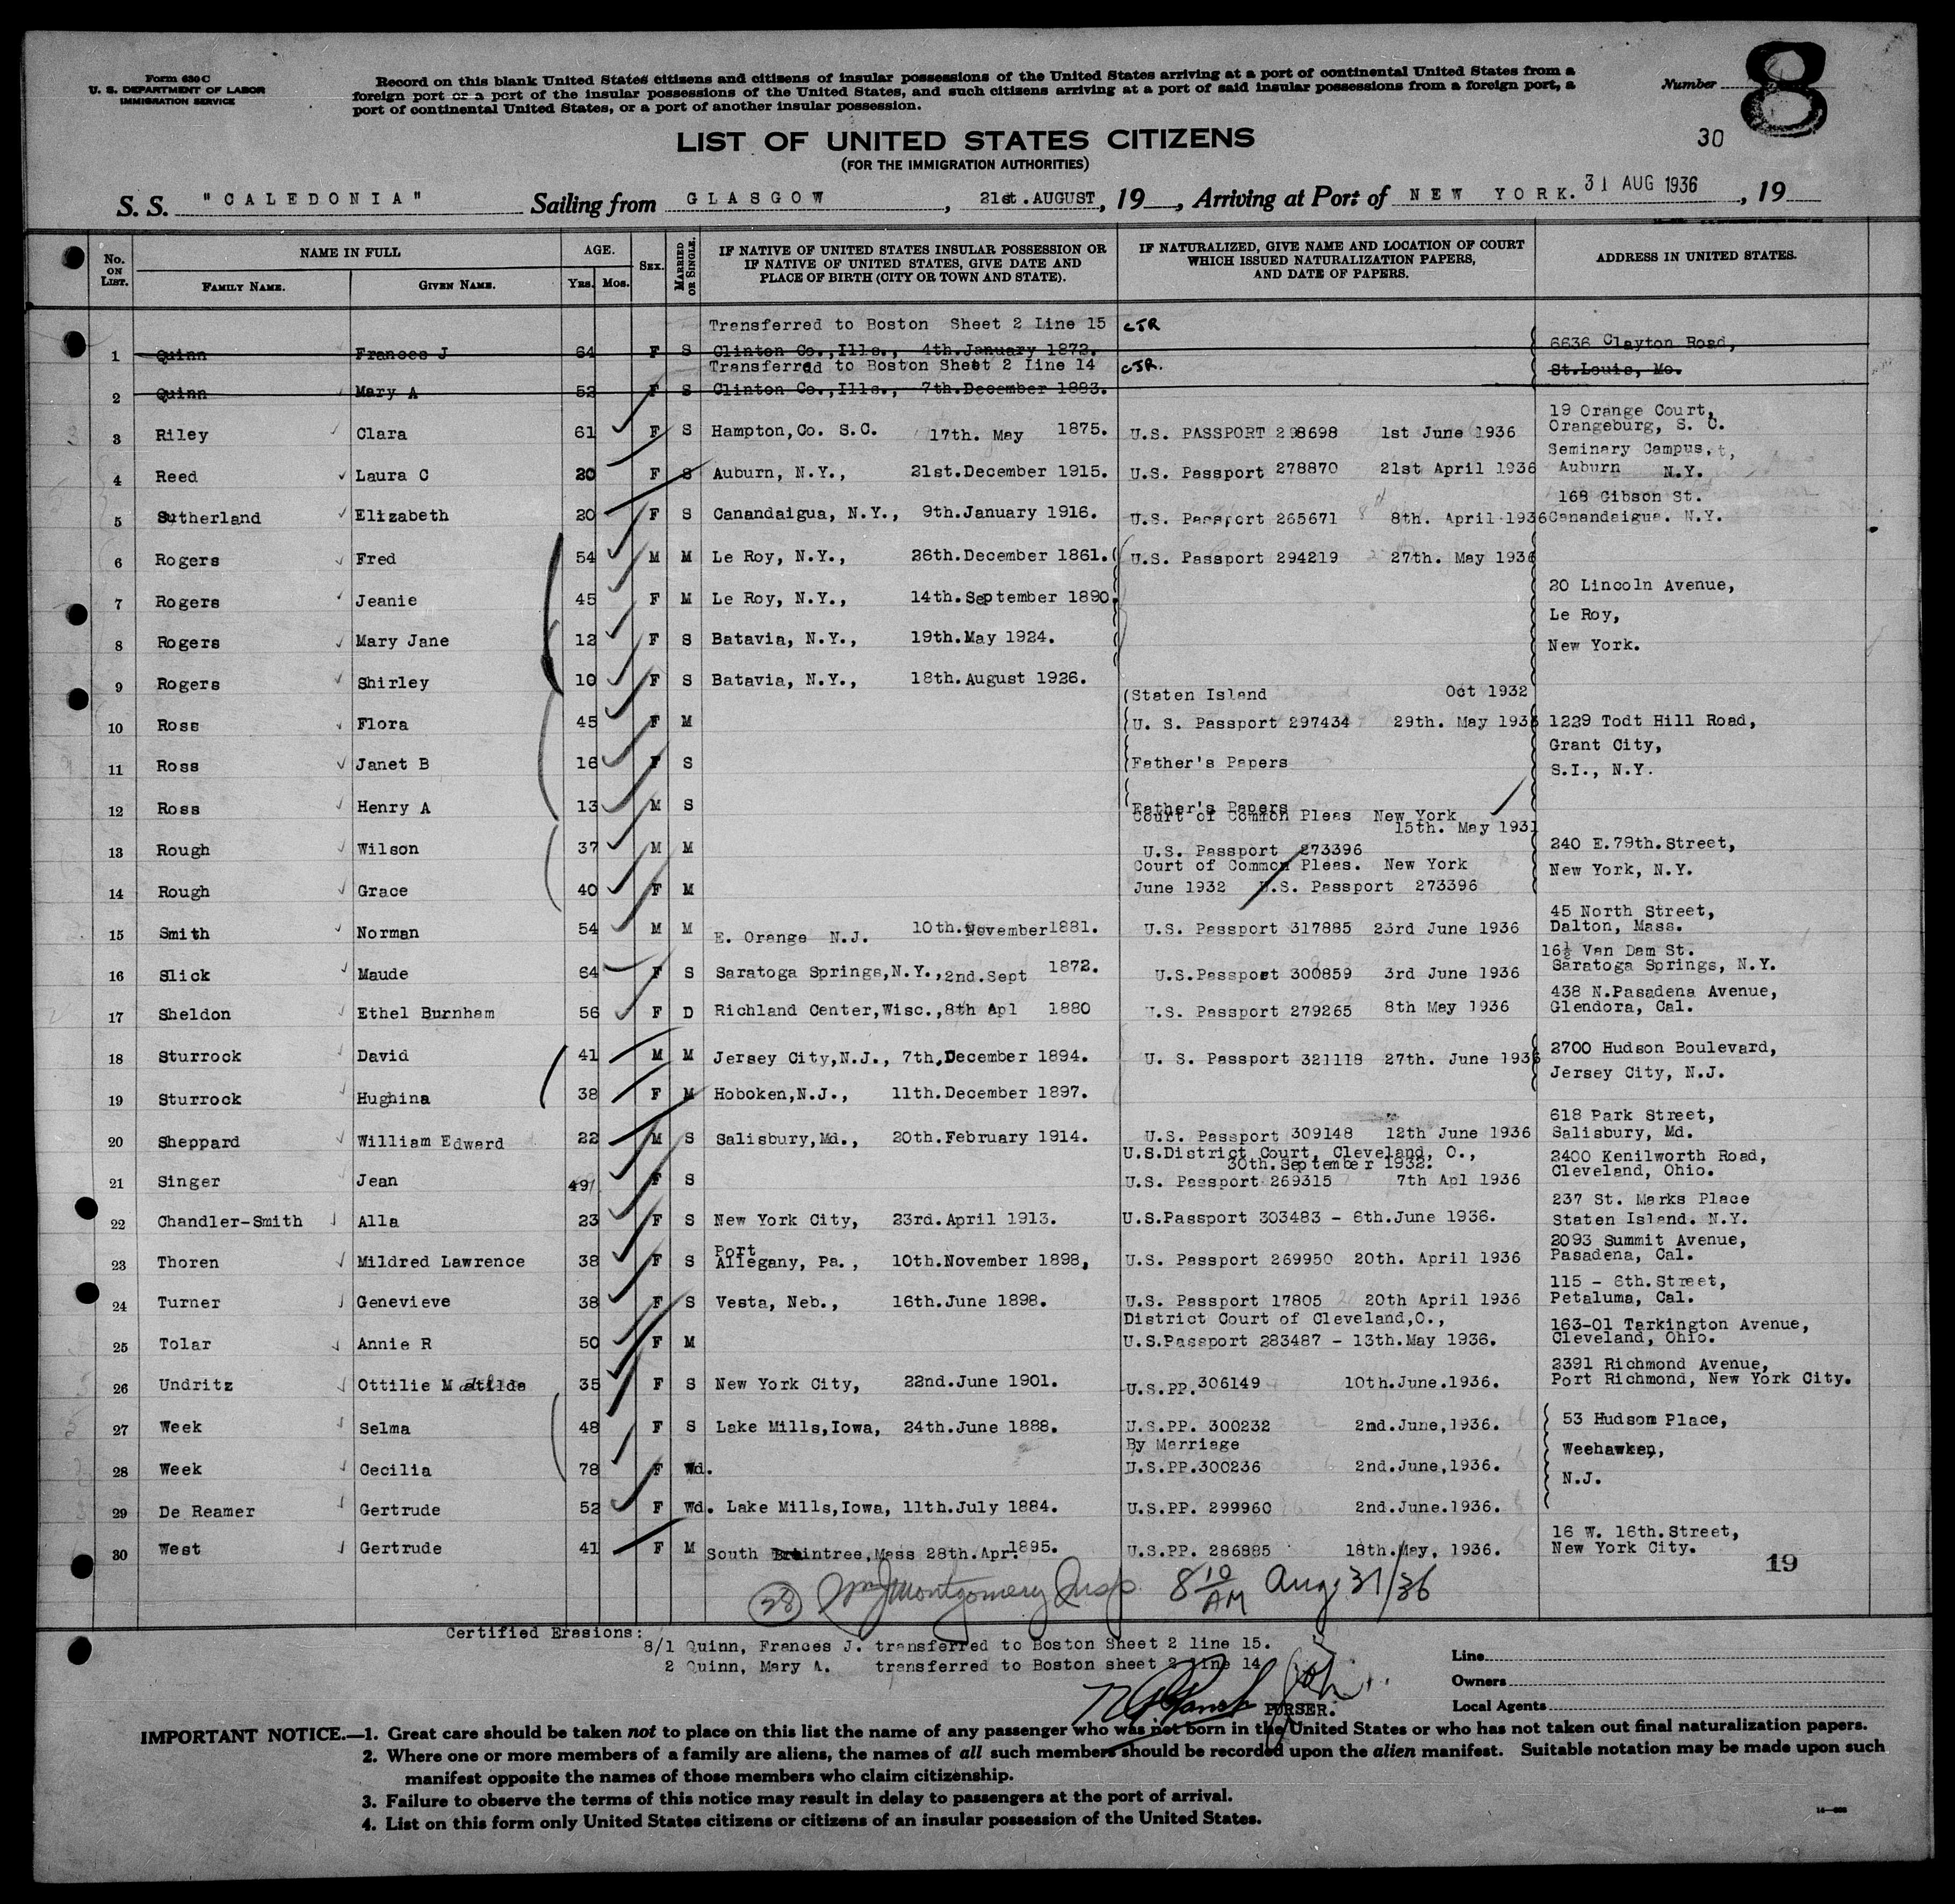 Form 630 C
U. S. DEPARTMENT OF LABOR
IMMIGRATION SERVICE
Record on this blank United States citizens and citizens of insular possessions of the United States arriving at a port of continental United States from a
foreign port or a port of the insular possessions of the United States, and such citizens arriving at a port of said insular possessions from a foreign port, a
port of continental United States, or a port of another insular possession.
Number 8
30
LIST OF UNITED STATES CITIZENS
(FOR THE IMMIGRATION AUTHORITIES)
S. S. "CALEDONIA" Sailing from GLASGOW, 21st.AUGUST, 19 , Arriving at Port of NEW YORK. 31 AUG 1936, 19
No. ON LIST. NAME IN FULL FAMILY NAME. GIVEN NAME. AGE. Yrs. Mos. SEX. MARRIED OR SINGLE. IF NATIVE OF UNITED STATES INSULAR POSSESSION OR IF NATIVE OF UNITED STATES, GIVE DATE AND PLACE OF BIRTH (CITY OR TOWN AND STATE). IF NATURALIZED, GIVE NAME AND LOCATION OF COURT WHICH ISSUED NATURALIZATION PAPERS, AND DATE OF PAPERS. ADDRESS IN UNITED STATES.
Transferred to Boston Sheet 2 Line 15 CJR
1 Quinn Frances J 64 F S Clinton Co.,Ills., 4th.January 1872. 6636 Clayton Road,
Transferred to Boston Sheet 2 Line 14 CJR. St.Louis, Mo.
2 Quinn Mary A 52 F S Clinton Co.,Ills., 7th.December 1883.
19 Orange Court,
3 Riley Clara 61 F S Hampton,Co. S.C. 17th. May 1875. U.S. PASSPORT 298698 1st June 1936 Orangeburg, S. C.
Seminary Campus,
4 Reed Laura C 20 F S Auburn, N.Y., 21st.December 1915. U.S. Passport 278870 21st April 1936 Auburn N.Y.
168 Gibson St.
5 Sutherland Elizabeth 20 F S Canandaigua, N.Y., 9th.January 1916. U.S. Passport 265671 8th. April 1936 Canandaigua. N.Y.
6 Rogers Fred 54 M M Le Roy, N.Y., 26th.December 1861. U.S. Passport 294219 27th. May 1936
7 Rogers Jeanie 45 F M Le Roy, N.Y., 14th.September 1890. 20 Lincoln Avenue,
Le Roy,
8 Rogers Mary Jane 12 F S Batavia, N.Y., 19th.May 1924. New York.
9 Rogers Shirley 10 F S Batavia, N.Y., 18th.August 1926.
Staten Island Oct 1932
10 Ross Flora 45 F M U. S. Passport 297434 29th. May 1936 1229 Todt Hill Road,
Grant City,
11 Ross Janet B 16 F S Father's Papers S.I., N.Y.
12 Ross Henry A 13 M S Father's Papers
Court of Common Pleas New York
15th. May 1931
13 Rough Wilson 37 M M U.S. Passport 273396 240 E.79th.Street,
Court of Common Pleas. New York New York, N.Y.
14 Rough Grace 40 F M June 1932 U.S. Passport 273396
45 North Street,
15 Smith Norman 54 M M E. Orange N.J. 10th.November1881. U.S. Passport 317885 23rd June 1936 Dalton, Mass.
16½ Van Dam St.
16 Slick Maude 64 F S Saratoga Springs,N.Y.,2nd.Sept 1872. U.S.Passport 300859 3rd June 1936 Saratoga Springs, N.Y.
438 N.Pasadena Avenue,
17 Sheldon Ethel Burnham 56 F D Richland Center,Wisc.,8th Apl 1880 U.S. Passport 279265 8th May 1936 Glendora, Cal.
18 Sturrock David 41 M M Jersey City,N.J., 7th.December 1894. U. S. Passport 321118 27th. June 1936 2700 Hudson Boulevard,
Jersey City, N.J.
19 Sturrock Hughina 38 F M Hoboken,N.J., 11th.December 1897.
618 Park Street,
20 Sheppard William Edward 22 M S Salisbury,Md., 20th.February 1914. U.S. Passport 309148 12th June 1936 Salisbury, Md.
U.S.District Court, Cleveland, O., 2400 Kenilworth Road,
30th.September 1932. Cleveland, Ohio.
21 Singer Jean 49 F S U.S. Passport 269315 7th Apl 1936
237 St. Marks Place
22 Chandler-Smith Alla 23 F S New York City, 23rd.April 1913. U.S.Passport 303483 - 6th.June 1936. Staten Island. N.Y.
Port 2093 Summit Avenue,
23 Thoren Mildred Lawrence 38 F S Allegany, Pa., 10th.November 1898, U.S. Passport 269950 20th. April 1936 Pasadena, Cal.
115 - 6th.Street,
24 Turner Genevieve 38 F S Vesta, Neb., 16th.June 1898. U.S. Passport 17805 20th April 1936 Petaluma, Cal.
District Court of Cleveland,O., 163-01 Tarkington Avenue,
25 Tolar Annie R 50 F M U.S.Passport 283487 - 13th.May 1936. Cleveland, Ohio.
2391 Richmond Avenue,
26 Undritz Ottilie Matilde 35 F S New York City, 22nd.June 1901. U.S.PP.306149 10th.June.1936. Port Richmond, New York City.
27 Week Selma 48 F S Lake Mills,Iowa, 24th.June 1888. U.S.PP. 300232 2nd.June,1936. 53 Hudson Place,
By Marriage Weehawken,
28 Week Cecilia 78 F Wd. U.S.PP.300236 2nd.June,1936. N.J.
29 De Reamer Gertrude 52 F Wd. Lake Mills,Iowa, 11th.July 1884. U.S.PP. 299960 2nd.June.1936.
16 W. 16th.Street,
30 West Gertrude 41 F M South Braintree,Mass 28th.Apr.1895. U.S.PP. 286885 18th.May, 1936. New York City.
19
28 Wm J Montgomery Insp. 8 10 AM Aug 31/36
Certified Erasions:
8/1 Quinn, Frances J. transferred to Boston Sheet 2 line 15.
2 Quinn, Mary A. transferred to Boston sheet 2 line 14
PURSER.
Line
Owners
Local Agents
IMPORTANT NOTICE.—1. Great care should be taken not to place on this list the name of any passenger who was not born in the United States or who has not taken out final naturalization papers.
2. Where one or more members of a family are aliens, the names of all such members should be recorded upon the alien manifest. Suitable notation may be made upon such
manifest opposite the names of those members who claim citizenship.
3. Failure to observe the terms of this notice may result in delay to passengers at the port of arrival.
4. List on this form only United States citizens or citizens of an insular possession of the United States.